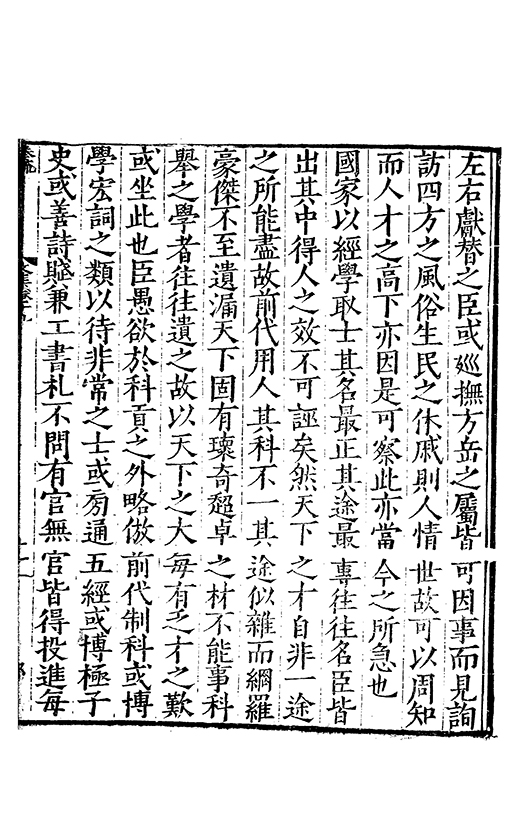 左右獻替之臣或廵撫方岳之屬皆可因事而見詢
訪四方之風俗生民之休戚則人情世故可以周知
而人才之高下亦因是可察此亦當今之所急也
國家以經學取士其名最正其途最專往往名臣皆
出其中得人之效不可誣矣然天下之才自非一途
之所能盡故前代用人其科不一其途似雜而綱羅
豪傑不至遺漏天下固有瓌奇超卓之材不能事科
舉之學者往往遺之故以天下之大每有乏才之歎
或坐此也臣愚欲於科貢之外略倣前代制科或博
學宏詞之類以待非常之士或旁通五經或博極子
史或善詩賦兼工書札不問有官無官皆得投進每